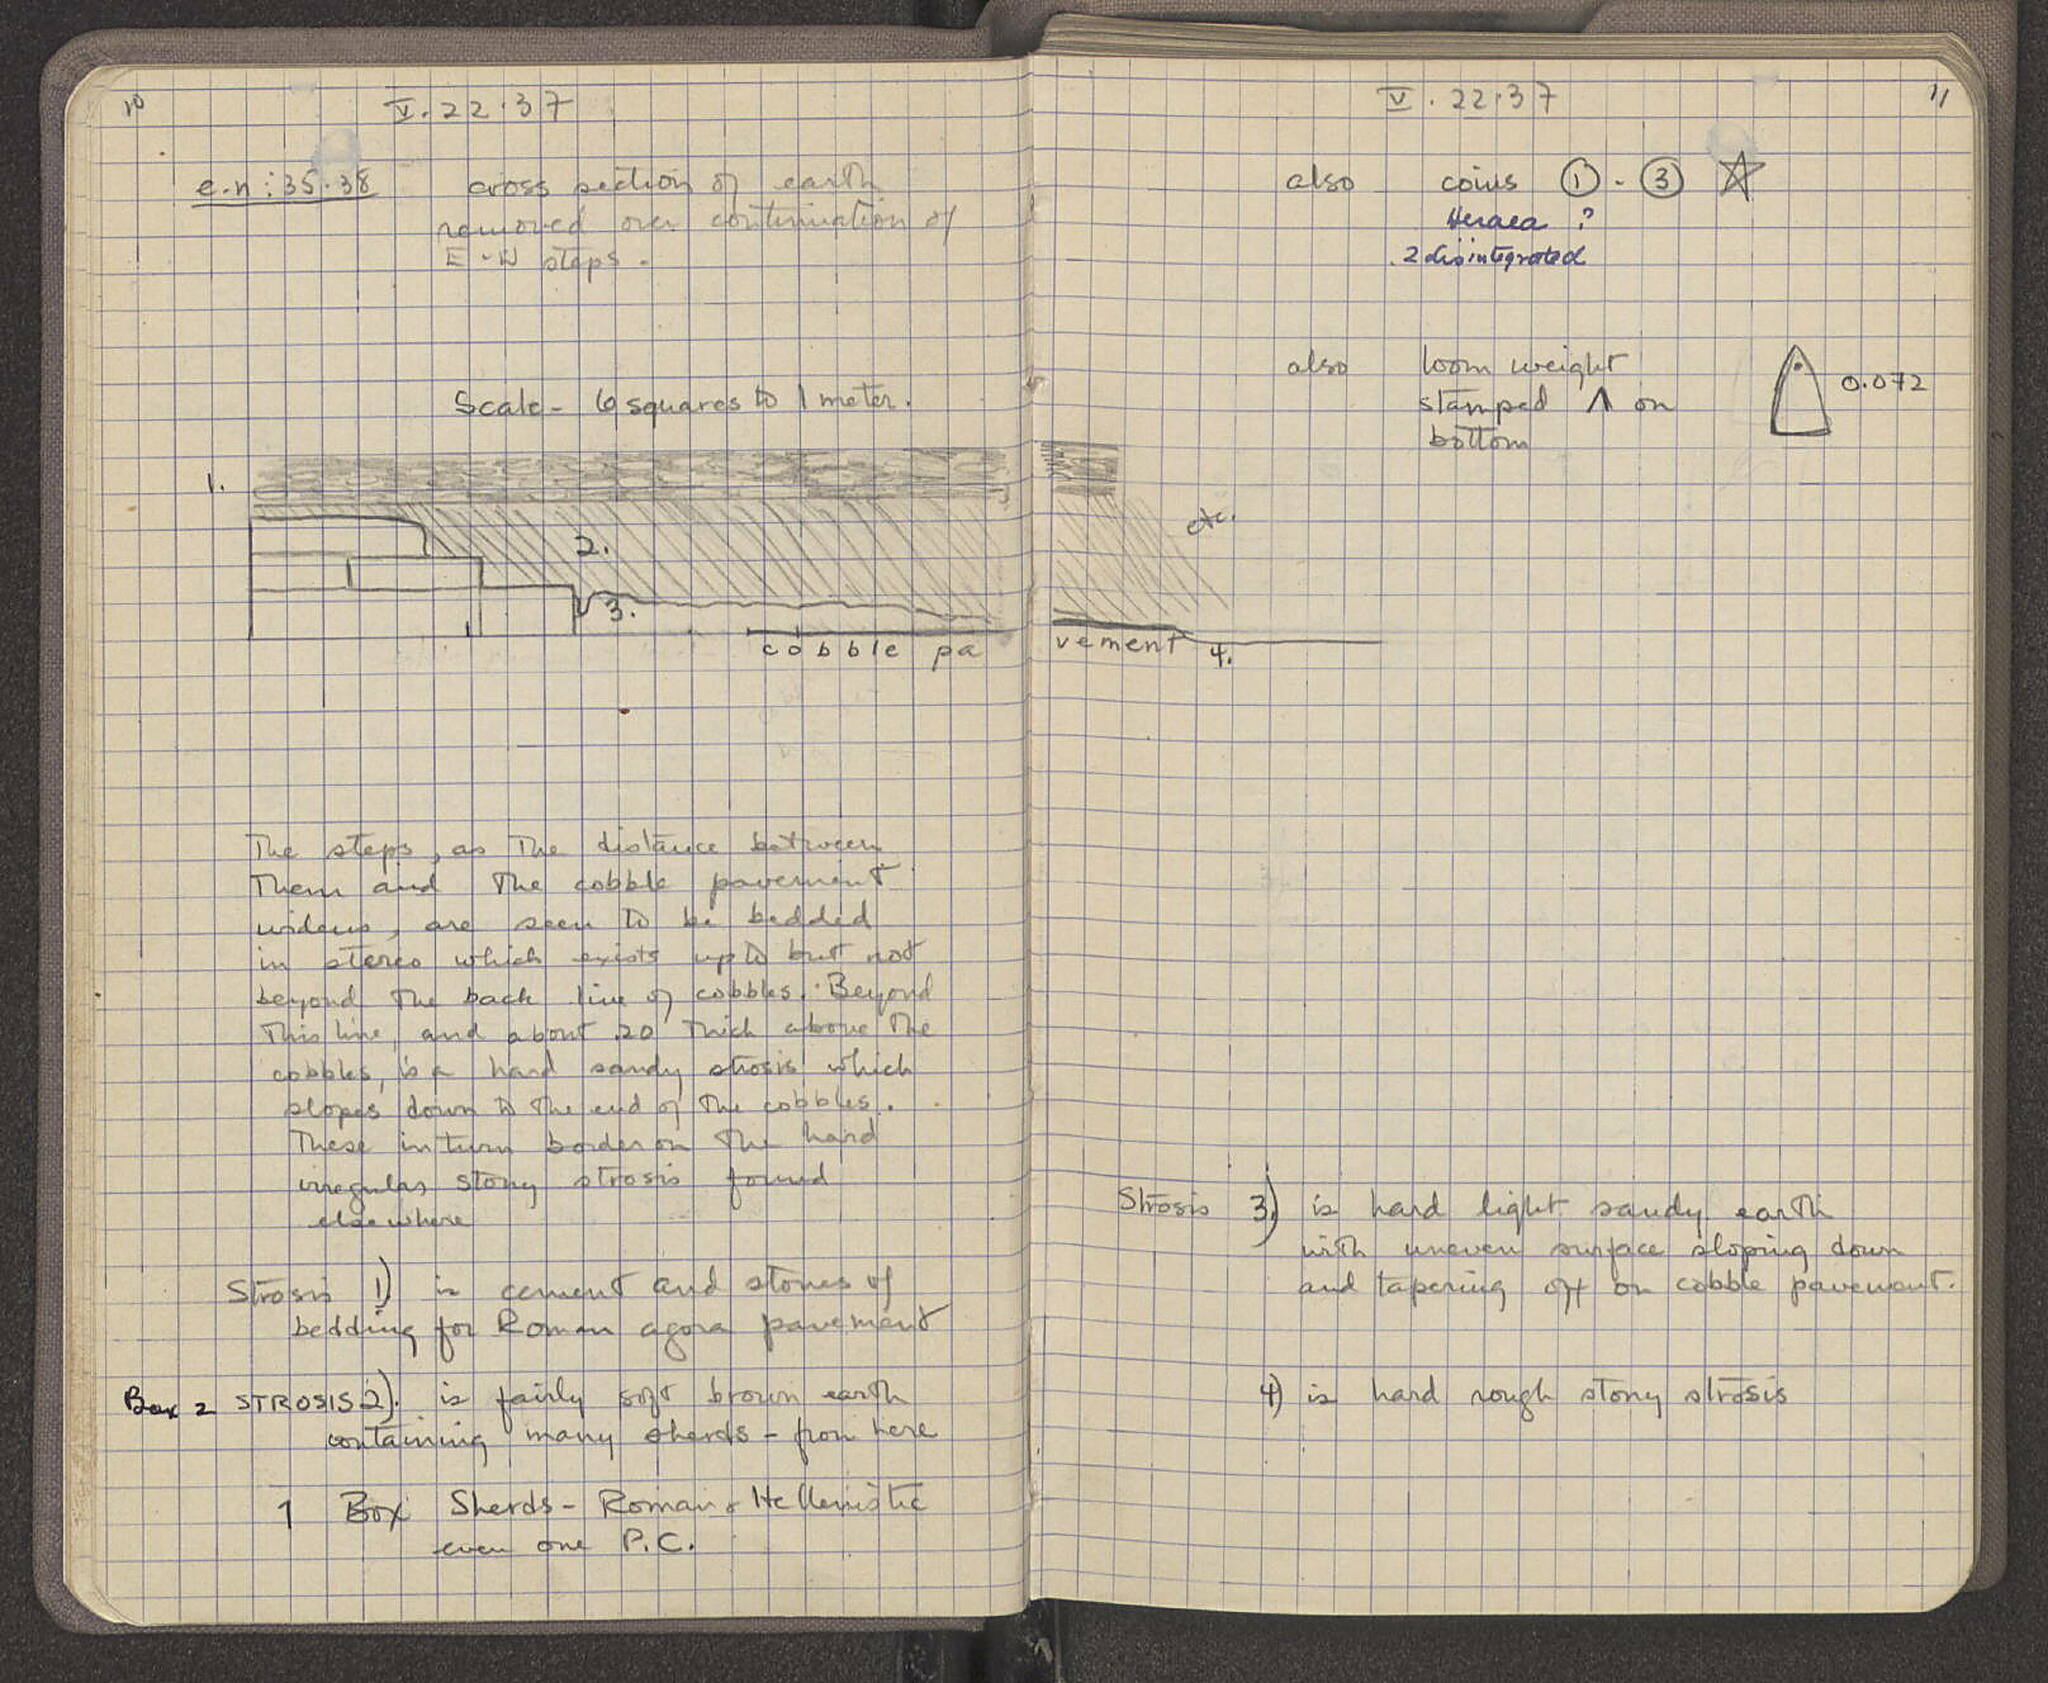 10
V. 22.37
e.n: 35.38 cross section of earth
removed over continuation of
E-W steps.
Scale - 6 squares to 1 meter.
1.
2.
3.
cobble pa
The steps, as the distance between
them and the cobble pavement
widens, are seen to be bedded
in stereo which exists up to but not
beyond the back line of cobbles. Beyond
this line, and about .20 thick above the
cobbles, is a hard sandy strosis which
slopes down to the end of the cobbles.
These in turn border on the hard
irregular stony strosis found
elsewhere
Strosis 1) is cement and stones of
bedding for Roman agora pavement
Box 2 STROSIS 2). is fairly soft brown earth
containing many sherds - from here
1 Box Sherds - Roman & Hellenistic
even one P.C.
11
V. 22.37
also coins ① - ③ ☆
Heraea ?
2 disintegrated
also loom weight
stamped Λ on
bottom
0.072
etc.
vement 4.
Strosis 3) is hard light sandy earth
with uneven surface sloping down
and tapering off on cobble pavement.
4) is hard rough stony strosis